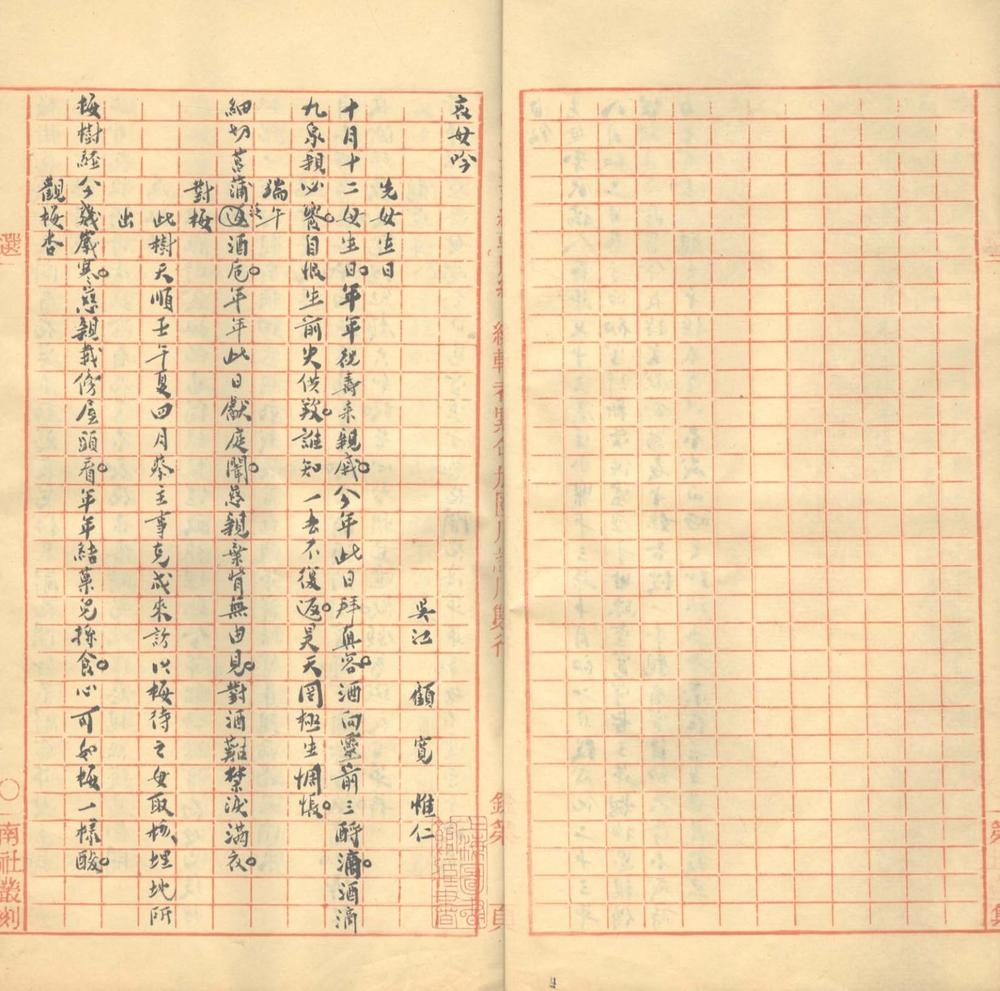 哀母吟
吳江 顧寬 惟仁
先母生日
十月十二母生日。年年祝壽來親戚。今年此日拜真容。酒向靈前三酹滴。酒滴
九泉親必嘗。自恨生前欠供歡。誰知一去不復返。昊天罔極生惆悵。
端午
細切菖蒲泛酒卮。年年此日獻庭闈。慈親棄背無由見。對酒難禁淚滿衣。
對梅
此樹天順壬午夏四月蔡主事克成來訪以梅待之母取核埋地所
出
梅樹經今幾歲寒。慈親栽傍屋頭看。年年結菓兒採食。心可如梅一樣酸。
觀梅杏
選
南社叢刻